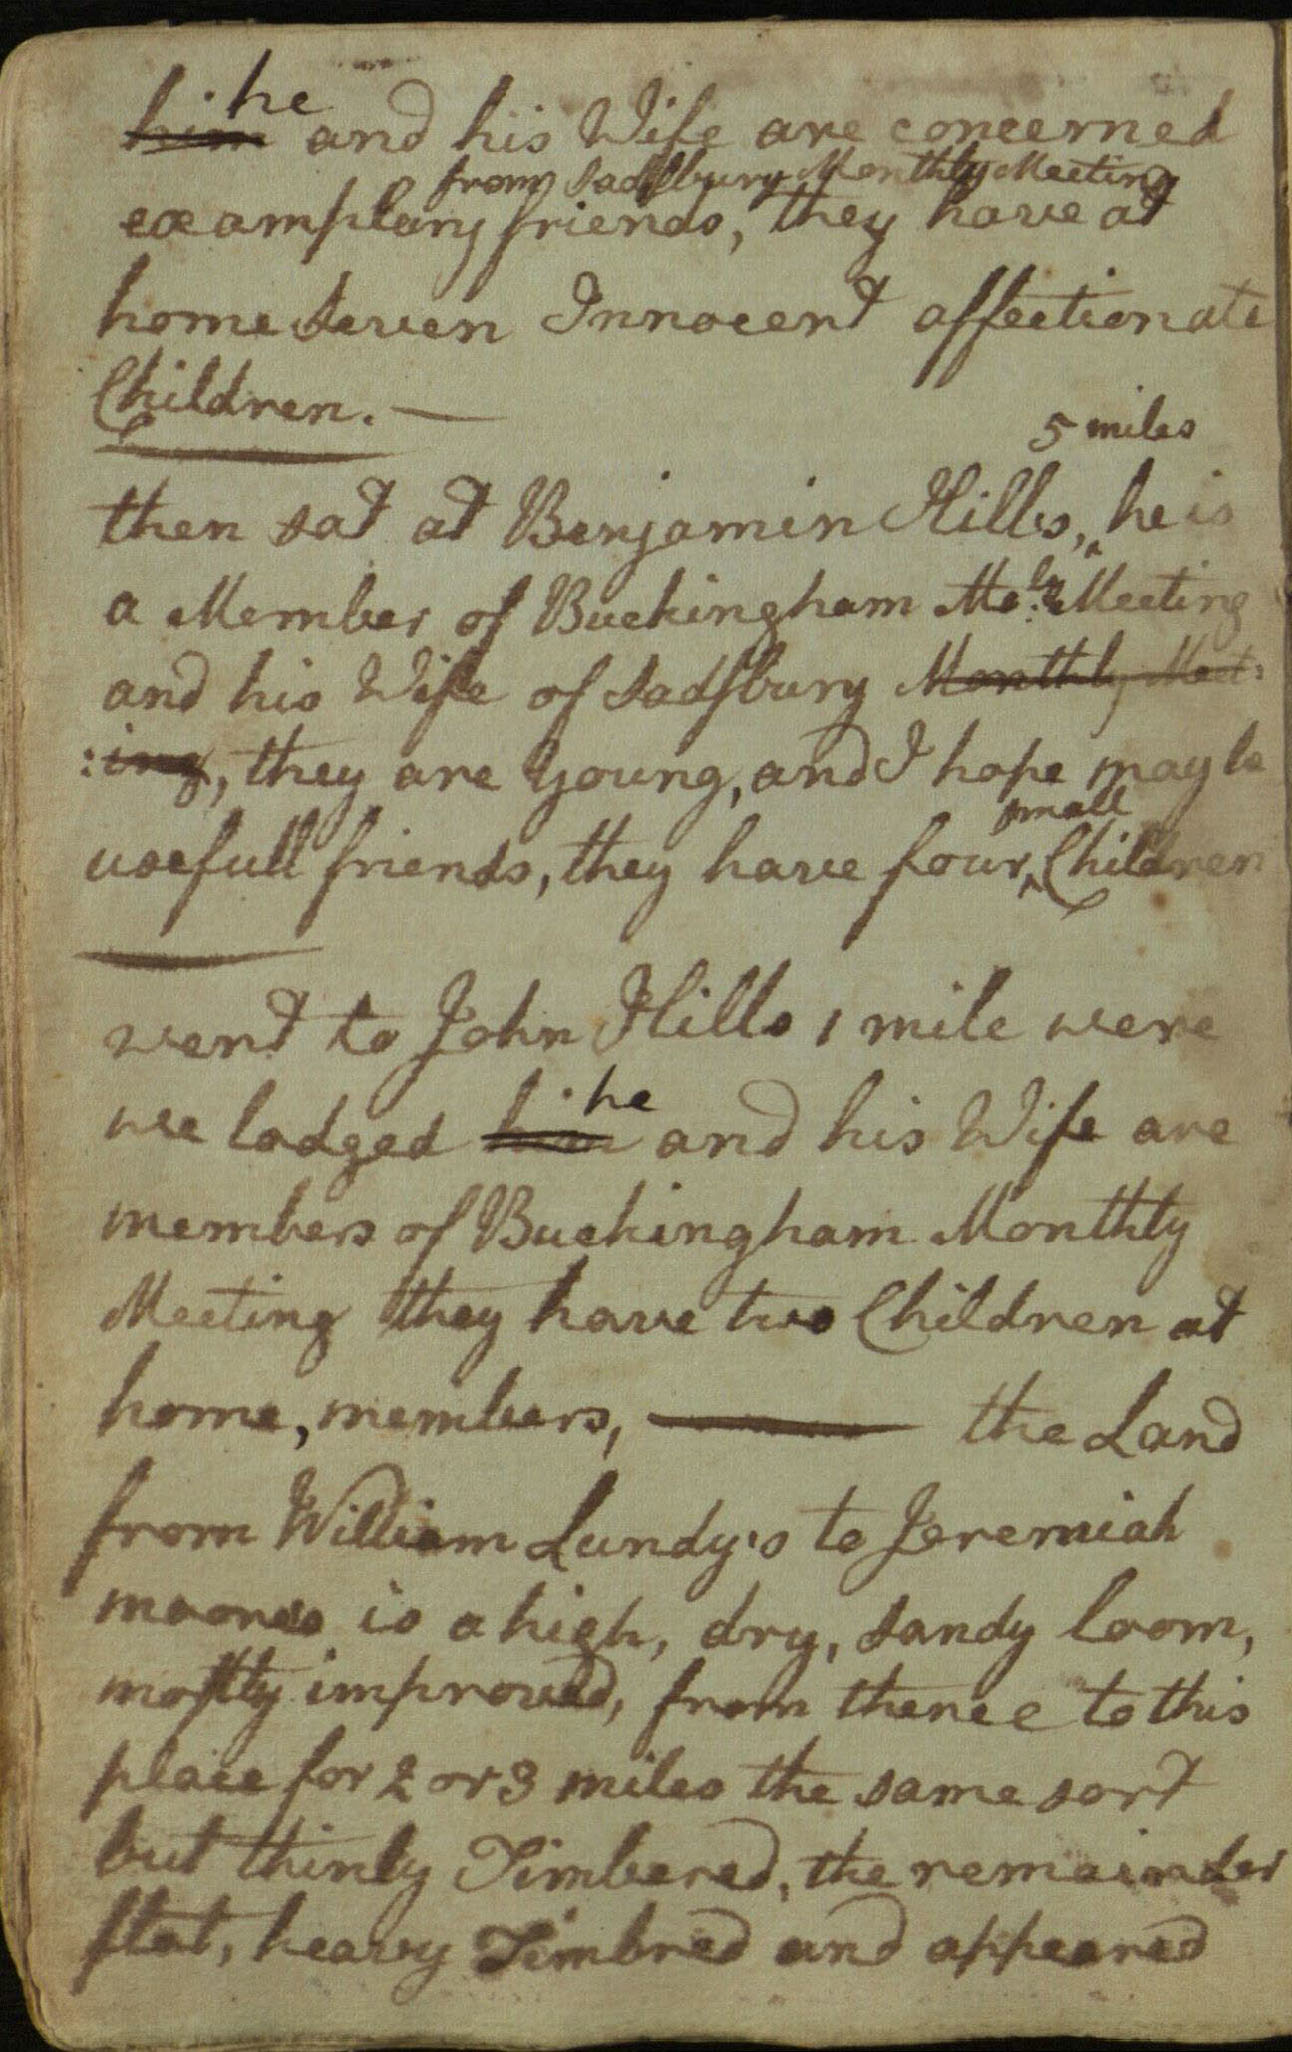 he
him and his Wife are concerned
from Sadsbury Monthly Meeting
examplary friends, they have at
home Seven Innocent affectionate
Children. —
5 miles
then sat at Benjamin Hills, ^ he is
a Member of Buckingham Mo:ly Meeting
and his Wife of Sadsbury Monthly Meet:
:ing, they are Young, and I hope may be
small
usefull friends, they have four ^ Children
went to John Hills 1 mile were
he
we lodged him and his Wife are
members of Buckingham Monthly
Meeting they have two Children at
home, members, — the Land
from William Lundy's to Jeremiah
moores is a high, dry, Sandy loom,
mostly improved, from thence to this
place for 2 or 3 miles the same sort
but thinly Timbered, the remainder
flat, heavy Timbred and appeared